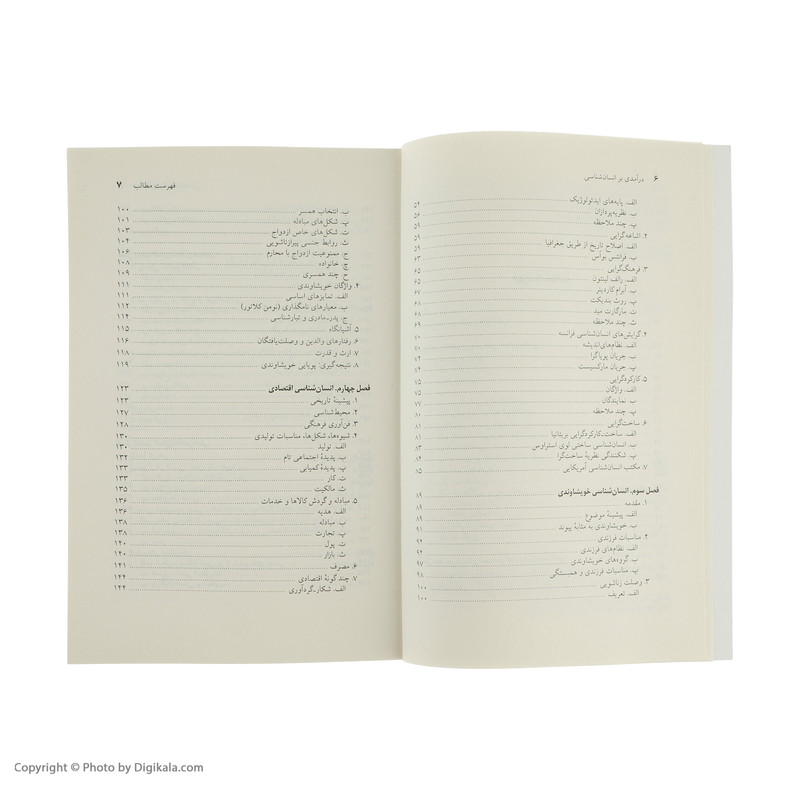 ۶ درآمدی بر انسان‌شناسی
الف. پایه‌های ایدئولوژیک ۵۴
ب. نظریه‌پردازان ۵۶
پ. چند ملاحظه ۵۹
۲. اشاعه‌گرایی ۵۹
الف. اصلاح تاریخ از طریق جغرافیا ۵۹
ب. فرانتس بوآس ۶۳
۳. فرهنگ‌گرایی ۶۵
الف. رالف لینتون ۶۵
ب. آبرام کاردینر ۶۷
پ. روث بندیکت ۶۸
ت. مارگارت مید ۶۸
ث. چند ملاحظه ۶۹
۴. گرایش‌های انسان‌شناسی فرانسه ۷۰
الف. نظام‌های‌اندیشه ۷۰
ب. جریان پویاگرا ۷۲
پ. جریان مارکسیست ۷۴
۵. کارکردگرایی ۷۵
الف. واژگان ۷۵
ب. نمایندگان ۷۷
پ. چند ملاحظه ۸۰
۶. ساخت‌گرایی
الف. ساخت-کارکردگرایی بریتانیا
ب. انسان‌شناسی ساختی لوی استراوس ۸۳
پ. شکنندگی نظریهٔ ساخت‌گرا ۸۴
۷. مکتب انسان‌شناسی آمریکایی ۸۵
فصل سوم. انسان‌شناسی خویشاوندی ۸۹
۱. مقدمه ۸۹
الف. پیشینهٔ موضوع ۸۹
ب. خویشاوندی به مثابهٔ پیوند ۹۱
۲. مناسبات فرزندی ۹۴
الف. نظام‌های فرزندی ۹۴
ب. گروه‌های خویشاوندی ۹۷
پ. مناسبات فرزندی و همبستگی ۹۸
۳. وصلت زناشویی ۱۰۰
الف. تعریف ۱۰۰
فهرست مطالب ۷
ب. انتخاب همسر ۱۰۰
پ. شکل‌های مبادله ۱۰۱
ت. شکل‌های خاص ازدواج ۱۰۳
ث. روابط جنسی پیرازناشویی ۱۰۴
ج. ممنوعیت ازدواج با محارم ۱۰۶
چ. خانواده ۱۰۸
ح. چند همسری ۱۰۹
۴. واژگان خویشاوندی ۱۱۱
الف. تمایزهای اساسی ۱۱۱
ب. معیارهای نامگذاری (نومن کلاتور) ۱۱۲
ج. پدر-مادری و تبارشناسی ۱۱۴
۵. آشیانگاه ۱۱۵
۶. رفتارهای والدین و وصلت‌یافتگان ۱۱۶
۷. ارث و قدرت ۱۱۸
۸. نتیجه‌گیری: پویایی خویشاوندی ۱۱۹
فصل چهارم. انسان‌شناسی اقتصادی ۱۲۳
۱. پیشینهٔ تاریخی ۱۲۳
۲. محیط‌شناسی ۱۲۷
۳. فن‌آوری فرهنگی ۱۲۸
۴. شیوه‌ها، شکل‌ها، مناسبات تولیدی ۱۳۰
الف. تولید ۱۳۰
ب. پدیدهٔ اجتماعی تام ۱۳۲
پ. پدیدهٔ کمیابی ۱۳۳
ت. کار ۱۳۳
ث. مالکیت ۱۳۵
۵. مبادله و گردش کالاها و خدمات ۱۳۶
الف. هدیه ۱۳۶
ب. مبادله ۱۳۸
پ. تجارت ۱۳۸
ت. پول ۱۴۰
ث. بازار ۱۴۰
۶. مصرف ۱۴۱
۷. چند گونهٔ اقتصادی ۱۴۴
الف. شکار-گردآوری ۱۴۴
Copyright © Photo by Digikala.com